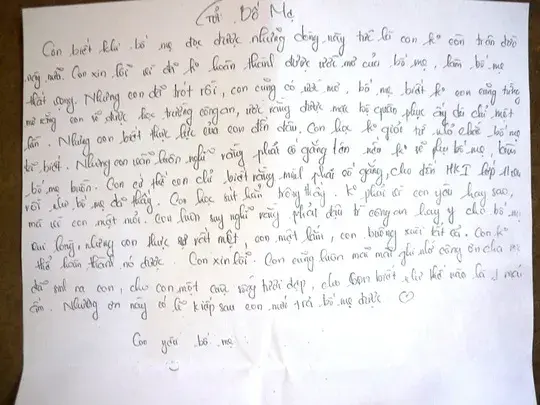 Gửi Bố Mẹ
Con biết khi bố mẹ đọc được những dòng này tức là con ko còn trên đời
này nữa. Con xin lỗi vì đã ko hoàn thành được ước mơ của bố mẹ, làm bố mẹ
thất vọng. Nhưng con đã trót rồi, con cũng có ước mơ, bố mẹ biết ko con cũng từng
mơ rằng con sẽ được học trường công an, ước rằng được mặc bộ quân phục ấy dù chỉ một
lần. Nhưng con biết thực lực của con đến đâu. Con học ko giỏi từ nhỏ chắc bố mẹ
biết. Nhưng con luôn nghĩ rằng phải cố gắng lên nếu ko sẽ phụ bố mẹ, khiến
bố mẹ buồn. Con cố thế con chỉ biết rằng mình phải cố gắng, cho đến HKI lớp
rồi như bố mẹ đã thấy. Con học sút hẳn trông thấy. ko phải vì con yêu hay sao,
mà vì con mệt mỏi. Con luôn suy nghĩ rằng phải đậu trg công an hay y cho bố mẹ
vui lòng, nhưng con thực sự rất mệt, con mệt lắm, con buông xuôi tất cả. Con ko
thể hoàn thành nó được. Con xin lỗi. Con cũng luôn mãi mãi ghi nhớ công ơn cha mẹ
đã sinh ra con, cho con một cuộc sống tươi đẹp, cho con biết như thế nào là mái
ấm. Nhưng ơn này có lẽ kiếp sau con mới trả bố mẹ được ♡
Con yêu bố mẹ